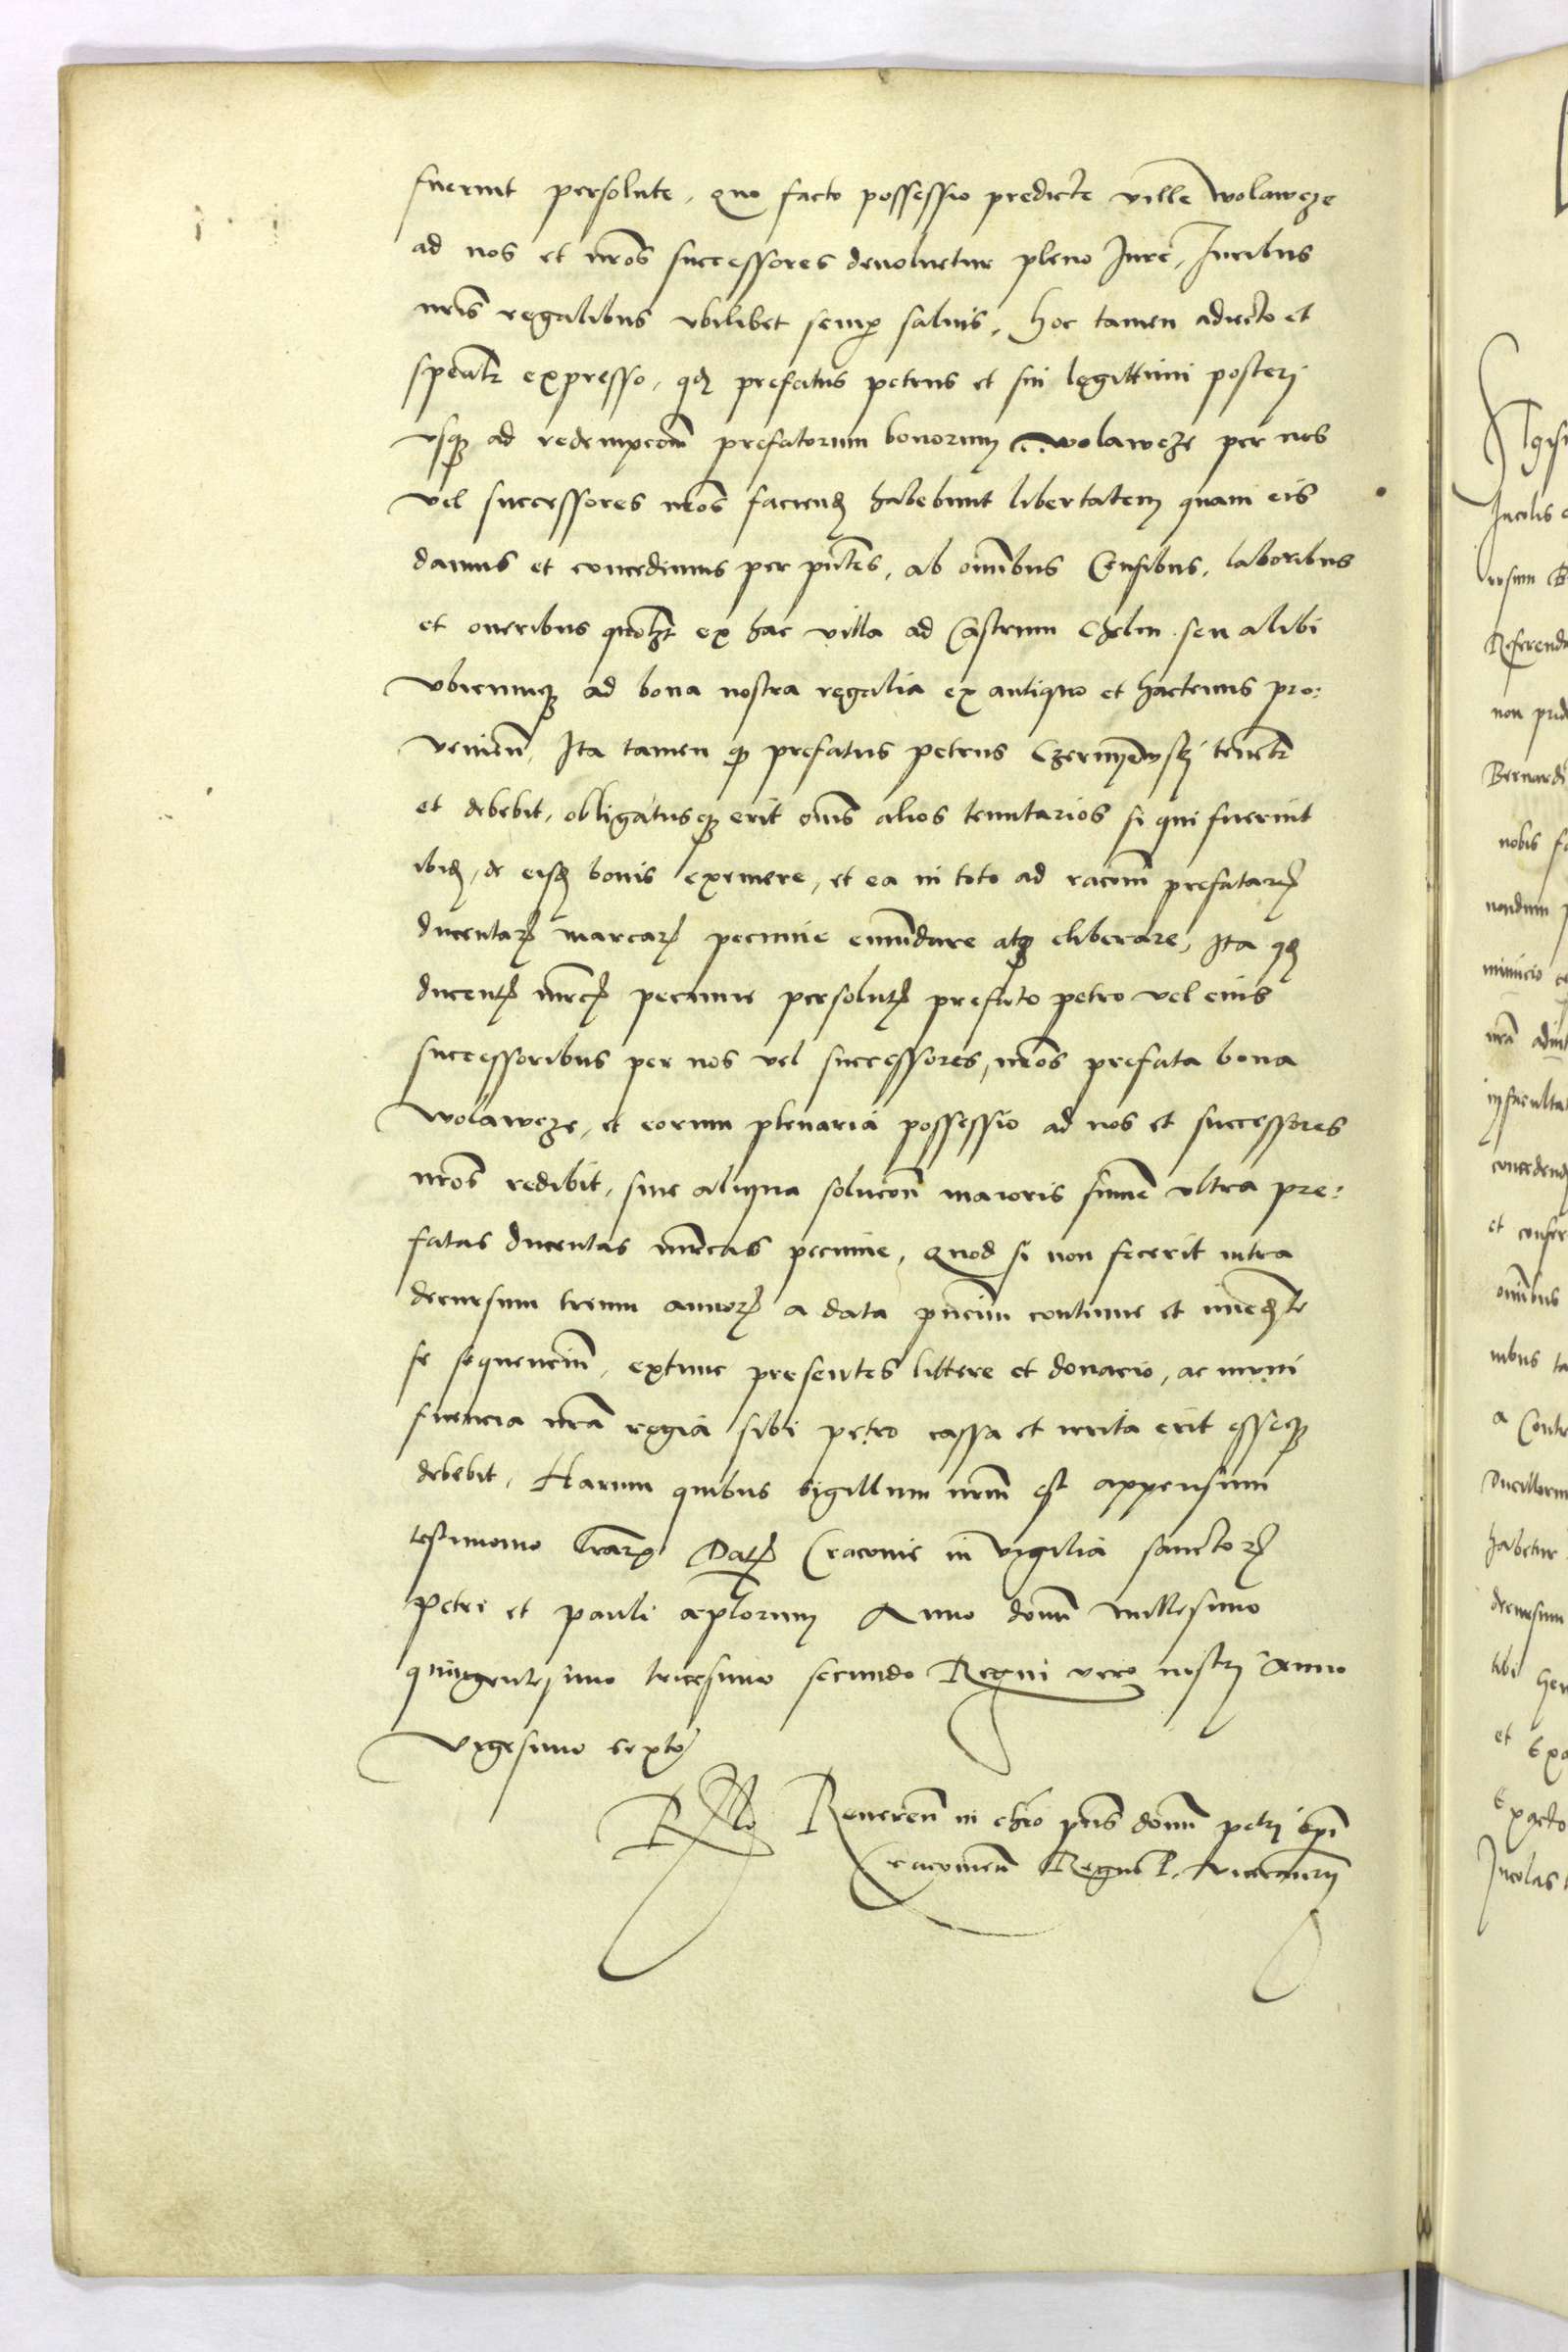 fuerint persolute, quo facto possessio predicte ville wolaweze
ad nos et nr̃os successores deuoluetur pleno Jure, Juribus
nr̃is regalibus vbilibet semꝑ saluis, hoc tamen adiecto et
expresso, qđ prefatus petrus et sui legittimi posterj
vsqꝫ ad redempcoēm prefatorum bonorum wolaweze per nos
vel successores nr̃os faciend habebunt libertatem quam eis
damus et concedimus per pn̄tes, ab omībus Censibus, laboribus
et oneribus ex hac villa ad Castrum Chelm seu alibi
vbicumqꝫ ad bona nostra regalia ex antiquo et hactenus pro:
venien̄, Ita tamen prefatus petrus Czernyeyowskj tenebt̃
et debebit, obligatusqꝫ erit om̄s alios tenutarios si qui fuerint
ibid, de eisd bonis exemere, et ea in toto ad racom̄ prefatarꝫ
ducentarꝫ marcarꝫ pecunie emūdare atqꝫ eliberare, Ita qđ
ducentꝫ mrcꝫ pecunie persolutꝫ prefato petro vel eius
successoribus per nos vel successores nr̃os prefata bona
wolaweze, et eorum plenaria possessio ad nos et successores
nr̃os redibit, sine aliqua solucōn maioris sum̄e vltra pre:
fatas ducentas mrcas pecunie, Quod si non fecerit intra
decursum trium annorꝫ a data pn̄cium continue et
se sequenciū, extunc presentes littere et donacio, ac muni
ficencia nr̃a regia sibi petro cassa et irrita erit esseqꝫ
debebit, Harum quibus sigillum nr̃m est appensum
testimonio lr̃arꝫ Datꝫ Cracouie in vigilia sanctorꝫ
petri et pauli apl̄orum Anno domī millesimo
quingentesimo tricesimo secundo Regni vero nostri Anno
vigesimo sexto
Rllo Reueren̄ in chr̃o pr̃is domī petri ep̄i
Cracouien̄ Regni P. vicecancrij